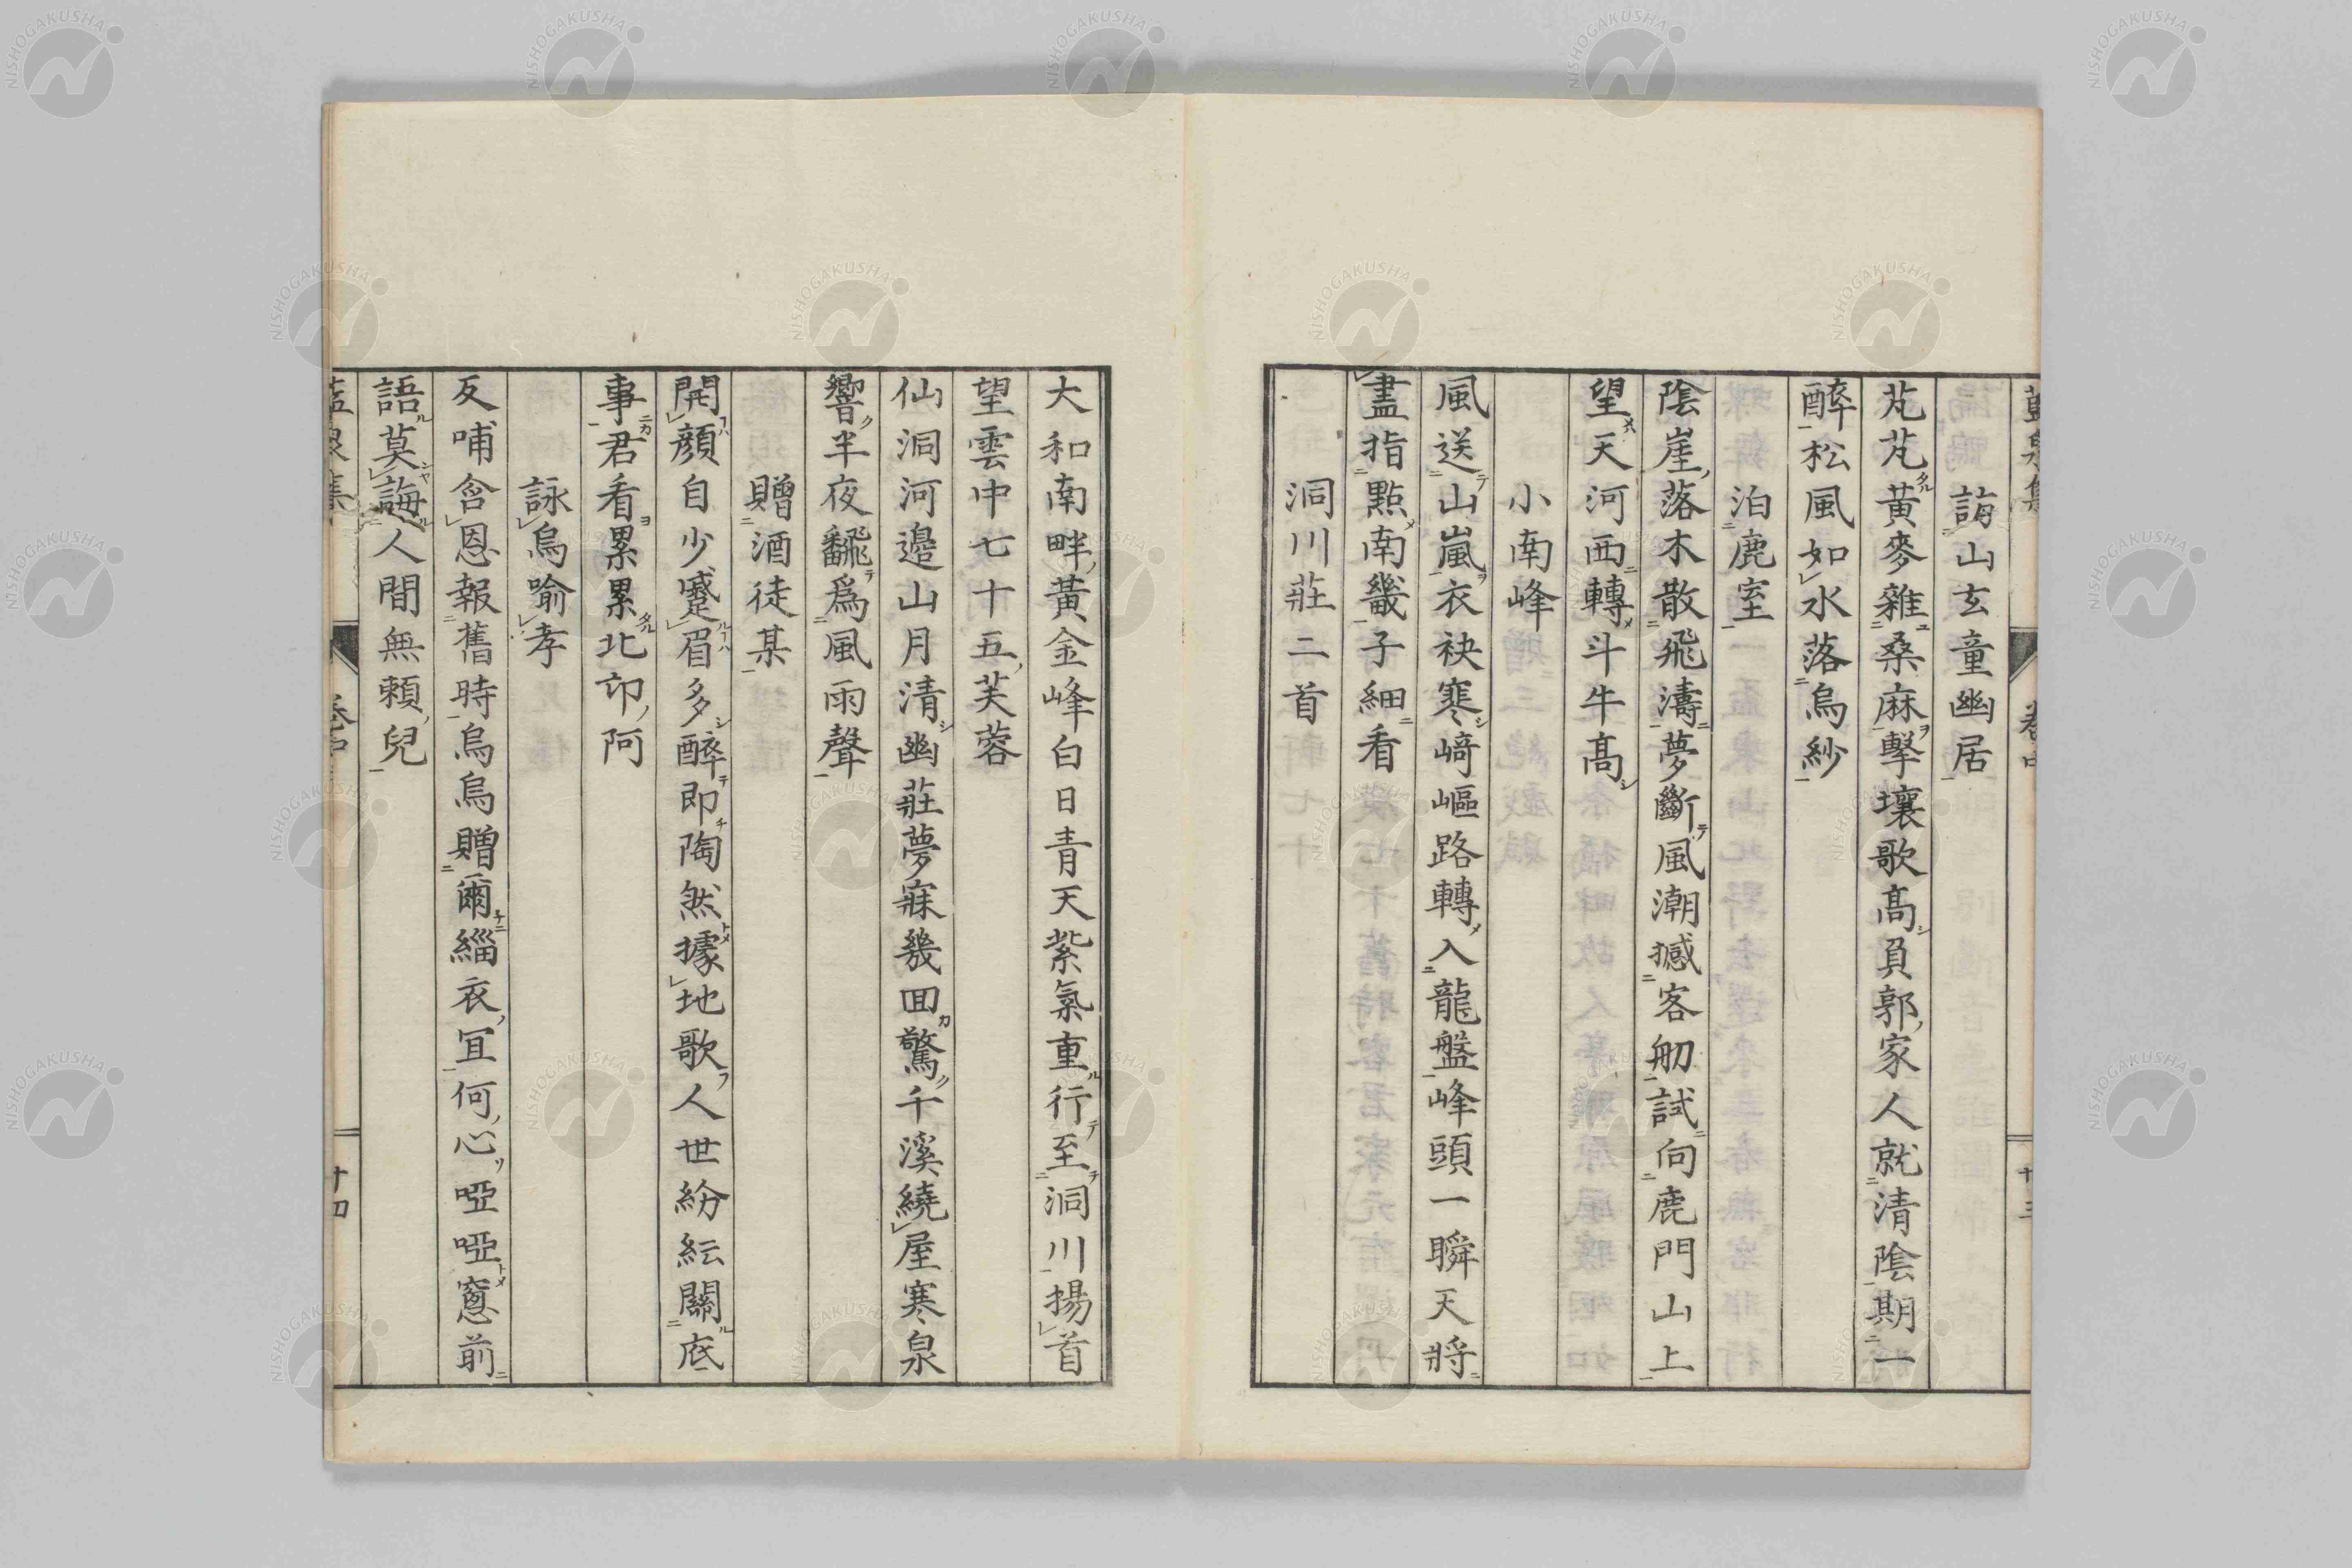 藍泉集 卷中 十三
詣山玄童幽居
芃芃黃麥雜桑麻擊壤歌高負郭家人就清陰期一
醉松風如水落烏紗
泊鹿室
陰崖落木散飛濤夢斷風潮撼客舠試向鹿門山上
望天河西轉斗牛高
小南峰
風送山嵐衣袂寒崎嶇路轉入龍盤峰頭一瞬天將
盡指點南畿子細看
洞川莊二首
大和南畔黃金峰白日青天紫氣重行至洞川揚首
望雲中七十五芙蓉
仙洞河邊山月清幽莊夢寐幾回驚千溪繞屋寒泉
響半夜飜爲風雨聲
贈酒徒某
開顏自少蹙眉多醉即陶然據地歌人世紛紜關底
事君看累累北邙阿
詠烏喻孝
反哺含恩報舊時烏烏贈爾緇衣宜何心啞啞窻前
語莫誨人間無賴兒
藍泉集 卷中 十四
NISHOGAKUSHA